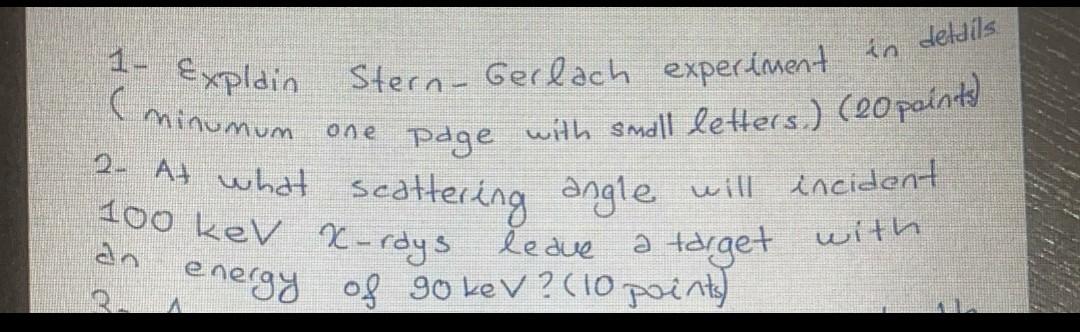 1- Explain Stern-Gerlach experiment in details
(minumum one page with small letters.) (20 points)
2- At what scattering angle will incident
100 keV x-rays leave a target with
an energy of 90 keV? (10 points)